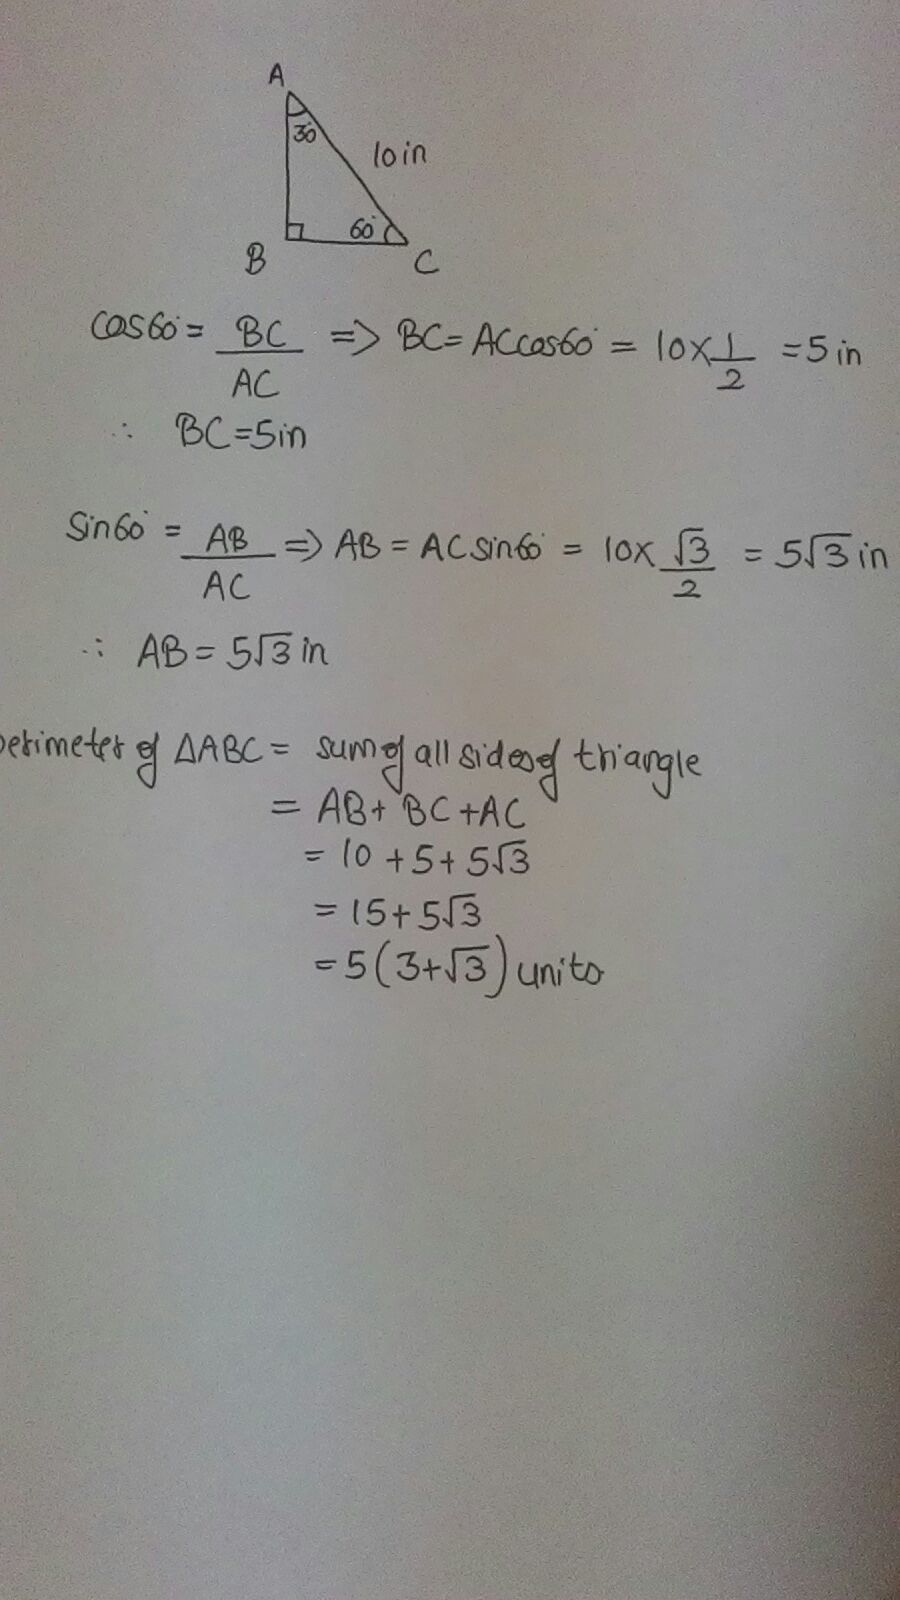 A
30°
10in
60°
B
C
cos60° = BC/AC => BC = ACcos60° = 10×1/2 = 5 in
∴ BC=5in
Sin60° = AB/AC => AB = ACsin60° = 10×√3/2 = 5√3 in
∴ AB = 5√3 in
perimeter of ΔABC = sum of all sides of triangle
= AB+ BC +AC
= 10 +5+ 5√3
= 15+ 5√3
= 5(3+√3) units